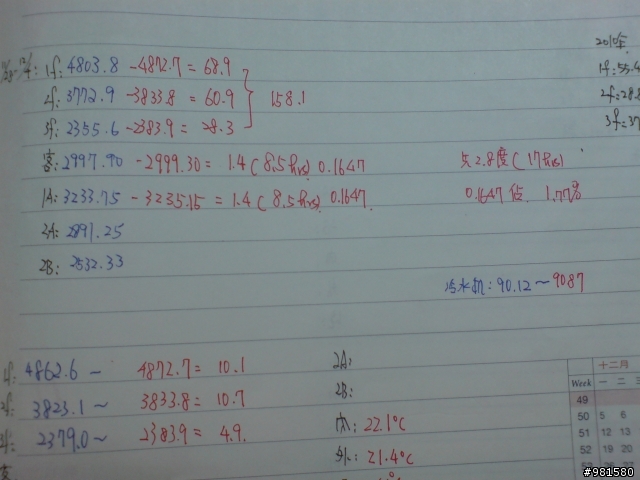 2010年
1f: 4803.8 -4872.7 = 68.9
2f: 3772.9 -3833.8 = 60.9 158.1
3f: 2355.6 -2383.9 = 28.3
客: 2997.90 -2999.30 = 1.4 (8.5hrs) 0.1647 共2.8度 (17hrs)
1A: 3233.75 -3235.15 = 1.4 (8.5hrs) 0.1647 0.1647佔 1.77%
2A: 2891.25
2B: 2532.33
冷水机: 90.12~9087
1f: 4862.6 - 4872.7 = 10.1
2f: 3823.1 ~ 3833.8 = 10.7
3f: 2379.0 ~ 2383.9 = 4.9.
2A:
2B:
内: 22.1°C
外: 21.4°C
十二月
Week 一 二 三
49
50 5 6
51 12 13
52 19 20
#981580